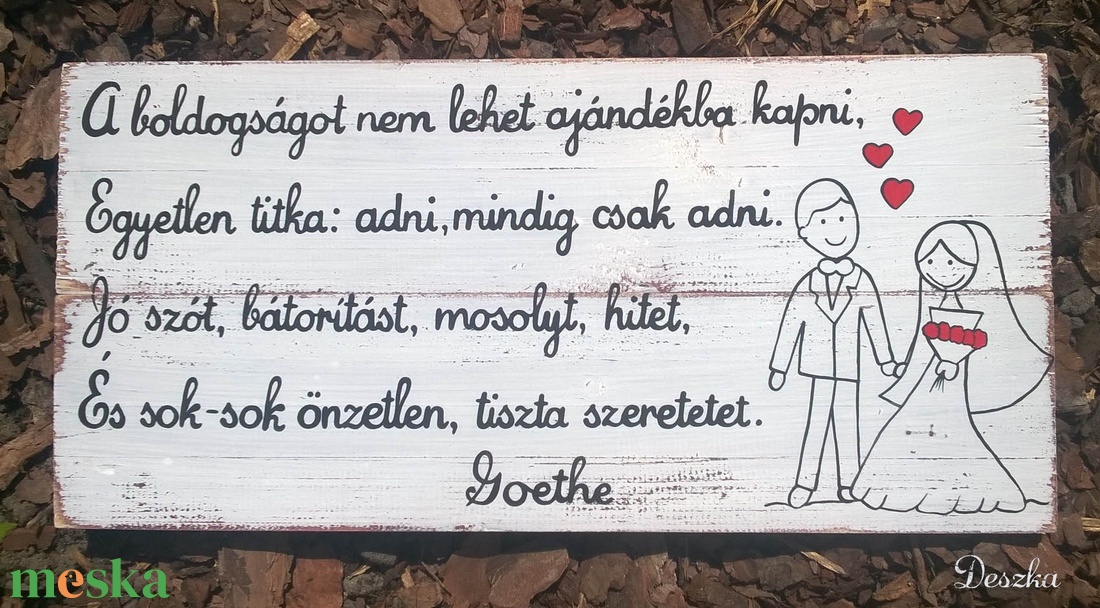 A boldogságot nem lehet ajándékba kapni,
Egyetlen titka: adni, mindig csak adni.
Jó szót, bátorítást, mosolyt, hitet,
És sok-sok önzetlen, tiszta szeretetet.
Goethe
meska
Deszka